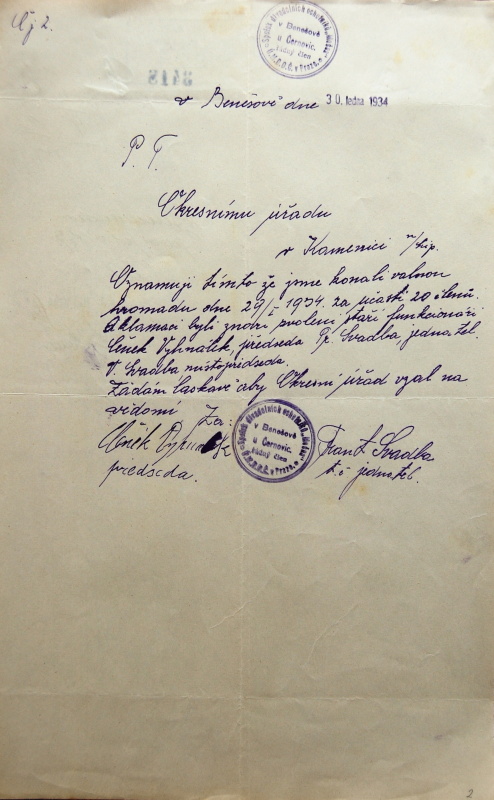 Čj 2.
Spolek divadelních ochotníků
v Benešově
u Černovic.
řádný člen
Ú.M.D.O.Č. v Praze.
3418
v Benešově dne 30. ledna 1934
P. T.
Okresnímu úřadu
v Kamenici n/Lip.
Oznamuji tímto že jsme konali valnou
hromadu dne 29/I 1934 za učasti 20 členů.
Aklamací byli znovu zvoleni staří funkcionáři
Čeněk Vyhnálek, předseda Fr. Svadba, jednatel
T. Svadba místopředseda.
Žádám laskavě aby Okresní úřad vzal na
vědomí Za:
Čeněk
předseda.
v Benešově
u Černovic.
řádný člen
Ú.M.D.O.Č. v Praze.
Frant. Svadba
t. č jednatel.
2